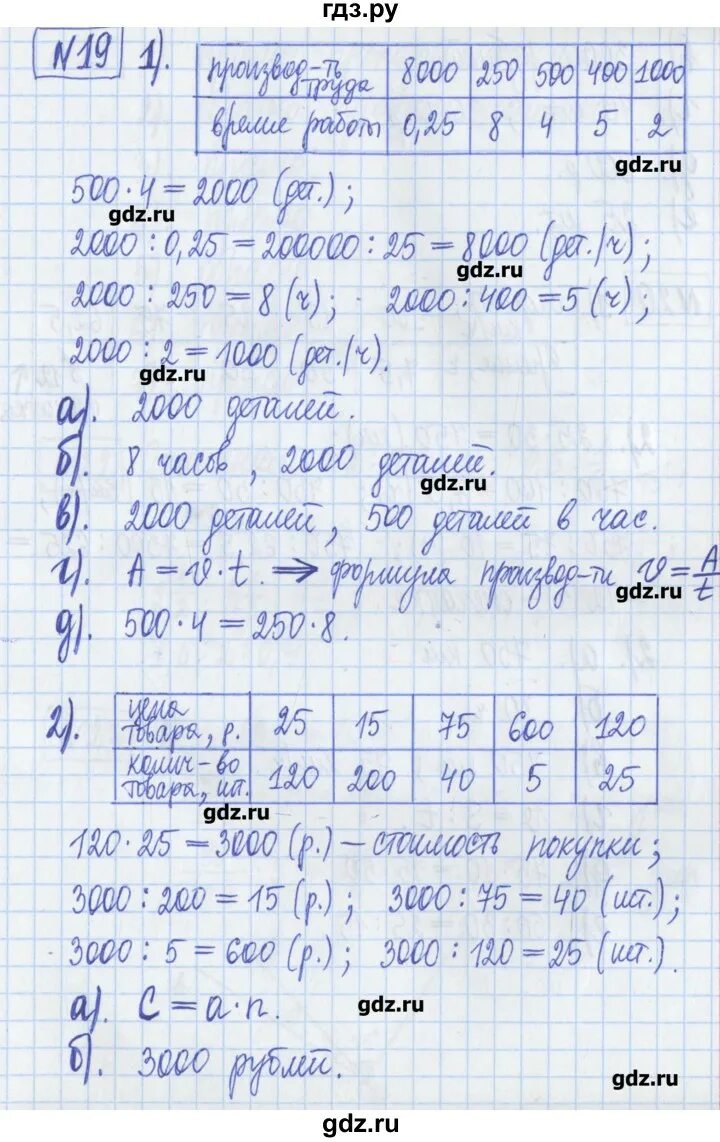 гдз.ру
№19 1). производ-ть труда 8000 250 500 400 1000
время работы 0,25 8 4 5 2
gdz.ru
500·4=2000 (дет.);
gdz.ru
2000:0,25=200000:25=8000 (дет./ч);
gdz.ru
2000:250=8 (ч); 2000:400=5 (ч);
2000:2=1000 (дет./ч).
gdz.ru
а). 2000 деталей.
б). 8 часов, 2000 деталей.
gdz.ru
в). 2000 деталей, 500 деталей в час.
г). A=v·t. ⇒ формула производ-ти v=A/t
gdz.ru
д). 500·4=250·8.
2). цена товара, р. 25 15 75 600 120
колич-во товара, шт. 120 200 40 5 25
gdz.ru
120·25=3000 (р.) – стоимость покупки;
3000:200=15 (р.); 3000:75=40 (шт.);
3000:5=600 (р.); 3000:120=25 (шт.).
а). C=a·n.
gdz.ru
б). 3000 рублей.
gdz.ru
gdz.ru